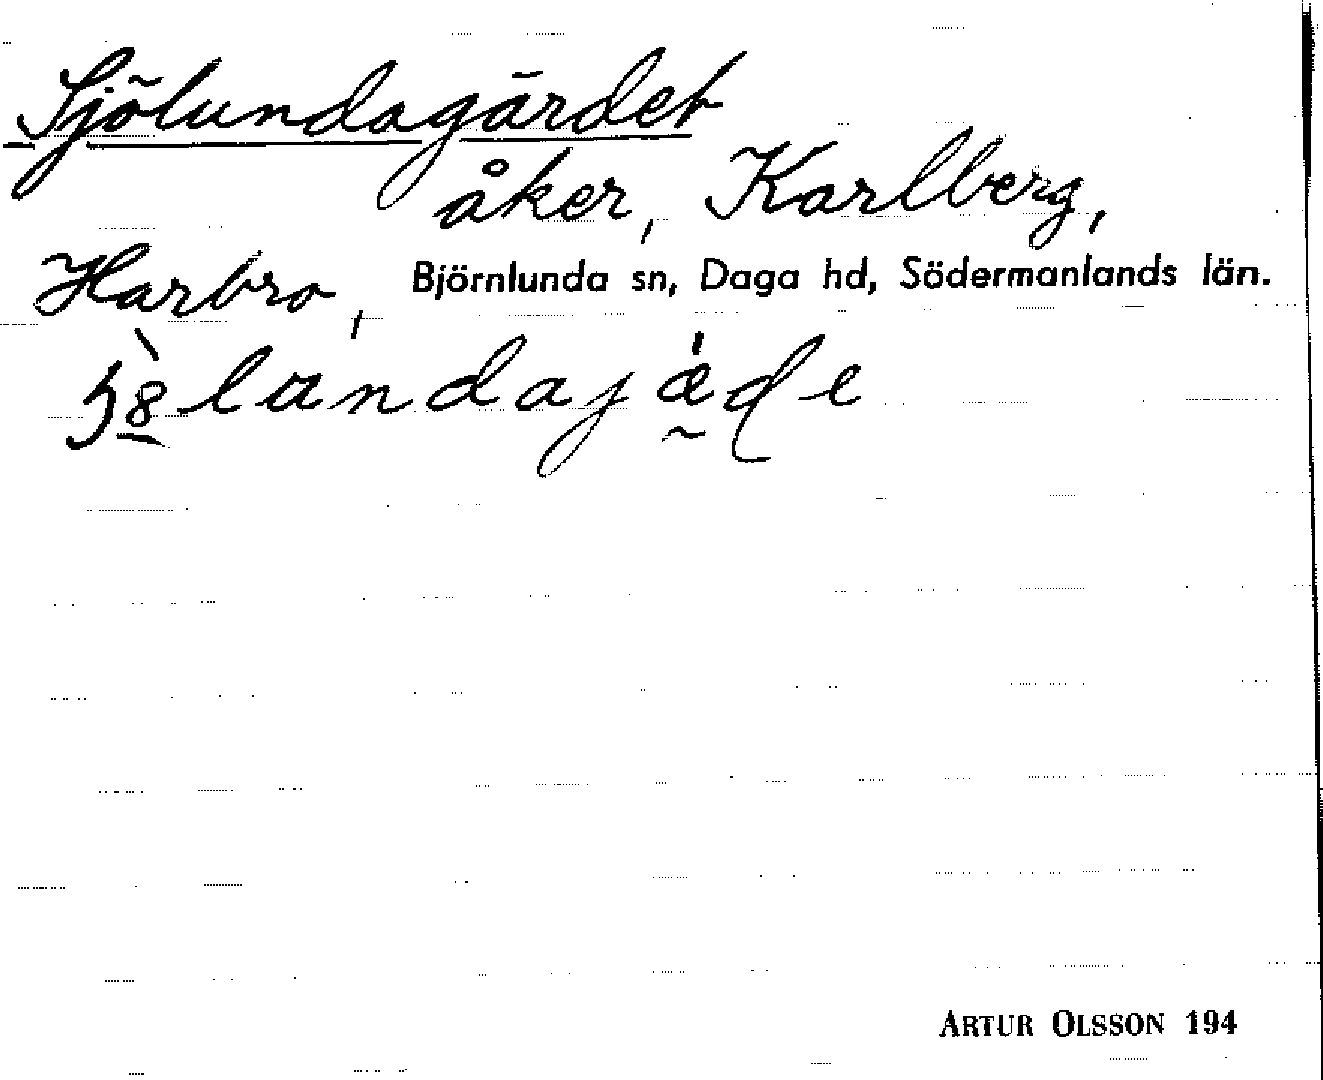 Sjölundagärdet
åker, Karlberg,
Harbro, Björnlunda sn, Daga hd, Södermanlands län.
ARTUR OLSSON 194